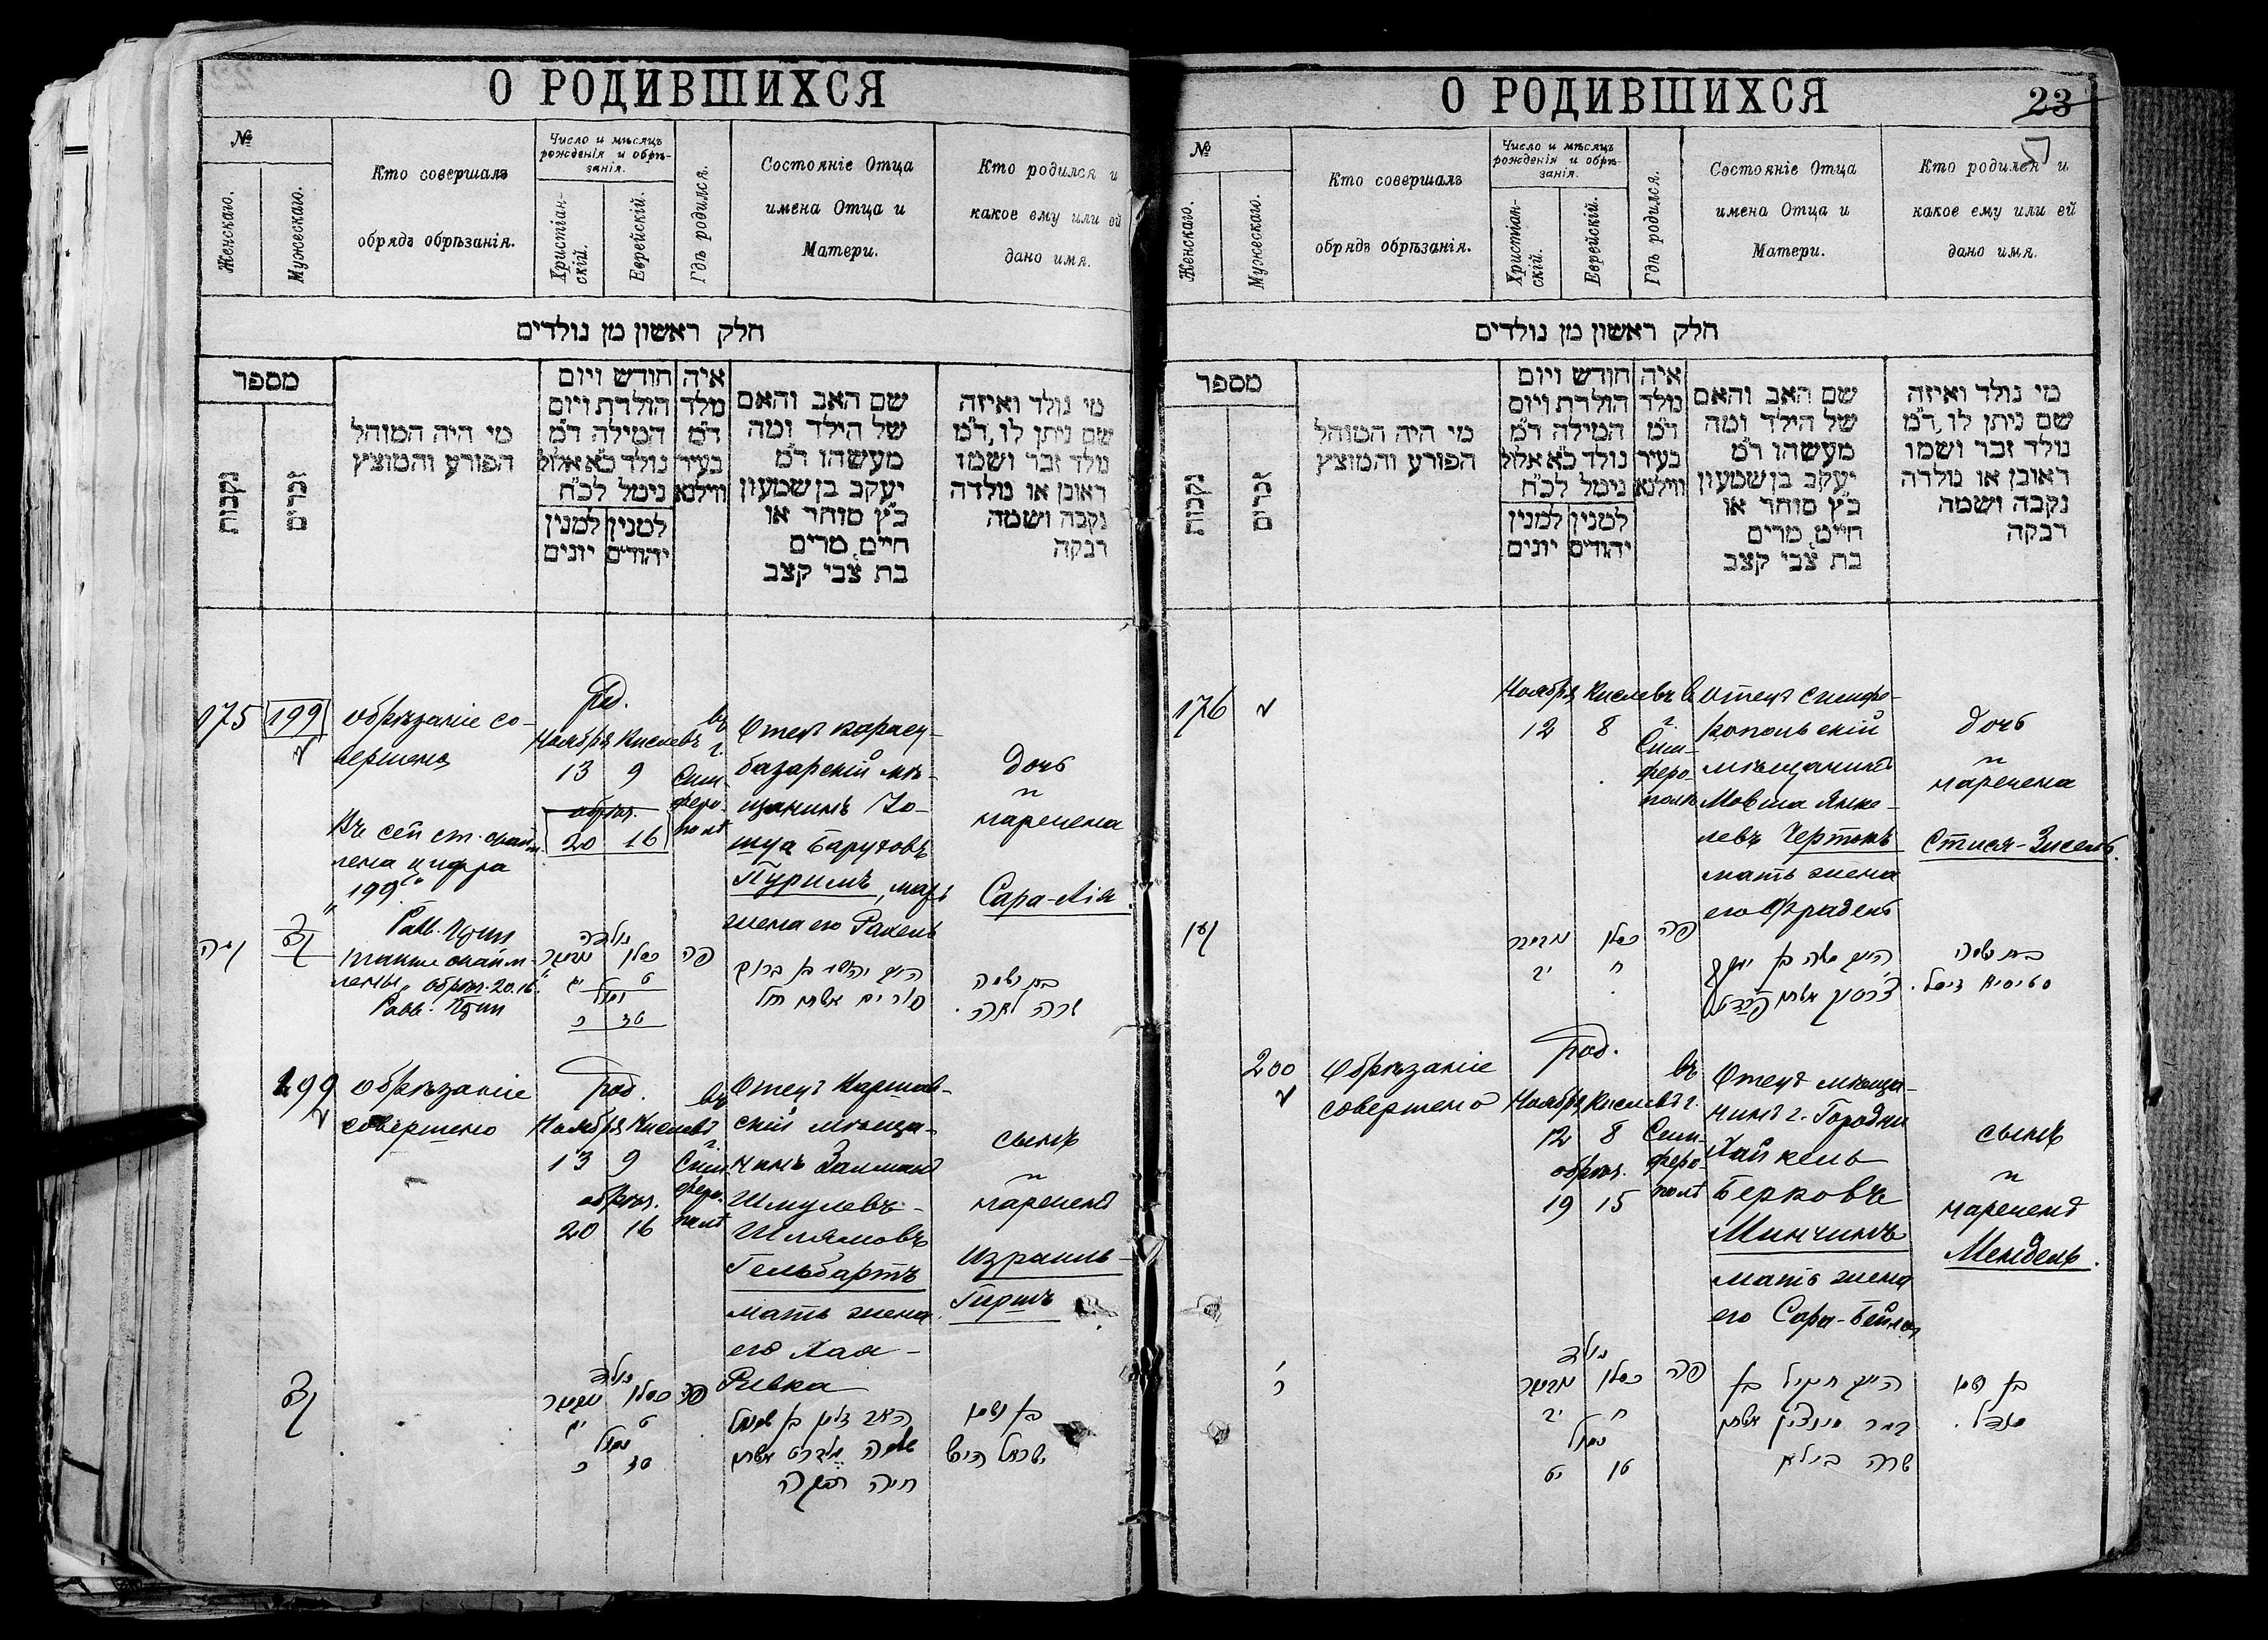 О РОДИВШИХСЯ
№
Женскаго.
Мужескаго.
Кто совершалъ
обрядъ обрѣзанія.
Число и мѣсяцъ
рожденія и обрѣ-
занія.
Христіан-
скій.
Еврейскій.
Гдѣ родился.
Состояніе Отца
имена Отца и
Матери.
Кто родился и
какое ему или ей
дано имя.
חלק ראשון מן נולדים
מספר
נקבות
זכרים
מי היה המוהל
הפורע והמוצץ
חודש ויום
הולדת ויום
המילה ד״מ
נולד כ״א אלול
נימל לכ״ח
למנין למנין
יהודים יונים
איה
נולד
ד״מ
בעיר
ווילנא
שם האב והאם
של הילד ומה
מעשהו ד״מ
יעקב בן שמעון
כ״ץ סוחר או
חייט, מרים
בת צבי קצב
מי נולד ואיזה
שם ניתן לו, ד״מ
נולד זכר ושמו
ראובן או נולדה
נקבה ושמה
רבקה
175
199
обрѣзаніе со-
вершено
Въ сей ст.
цифра
"199"
Рав.
обрѣз. 20. 16.
Рав.
род.
Ноября Кислевъ
13 9
обрѣз.
20 16
въ
г.
Сим-
феро-
полѣ
Отецъ карасу-
базарскій мѣ-
щанинъ Іо-
шуа Баруховъ
Пуримъ, мать
жена его Рахель
дочь
и
наречена
Сара-Лія.
נולדה
כסלו
ט
יג
פה
פורים אשתו רחל
בת ושמה
שרה לאה.
199
обрѣзаніе
совершено
род.
Ноября Кислевъ
13 9
обрѣз.
20 16
въ
г.
Сим-
феро-
полѣ
Отецъ
скій мѣща-
нинъ Залманъ
Шмулевъ-
Шлямовъ
Гельбартъ
мать жена
его Хая-
Ривка
сынъ
и
нареченъ
Израиль-
Гиршъ
נולד
כסלו
ט
יג
נמול
טז
כ
פה
חיה רבקה
בן ושמו
ישראל הירש
О РОДИВШИХСЯ
23
№
Женскаго.
Мужескаго.
Кто совершалъ
обрядъ обрѣзанія.
Число и мѣсяцъ
рожденія и обрѣ-
занія.
Христіан-
скій.
Еврейскій.
Гдѣ родился.
Состояніе Отца
имена Отца и
Матери.
Кто родился и
какое ему или ей
дано имя.
חלק ראשון מן נולדים
מספר
נקבות
זכרים
מי היה המוהל
הפורע והמוצץ
חודש ויום
הולדת ויום
המילה ד״מ
נולד כ״א אלול
נימל לכ״ח
למנין למנין
יהודים יונים
איה
נולד
ד״מ
בעיר
ווילנא
שם האב והאם
של הילד ומה
מעשהו ד״מ
יעקב בן שמעון
כ״ץ סוחר או
חייט, מרים
בת צבי קצב
מי נולד ואיזה
שם ניתן לו, ד״מ
נולד זכר ושמו
ראובן או נולדה
נקבה ושמה
רבקה
176
Ноября Кислевъ
12 8
въ
г.
Сим-
феро-
полѣ
Отецъ симфе-
ропольскій
мѣщанинъ
Мовша Янке-
левъ Чертокъ
мать жена
его Фрадель
дочь
и
наречена
Стися-Зисель.
כסלו
ח
יב
פה
בת ושמה
סטיסיא זיסל.
200
Обрѣзаніе
совершено
род.
Ноября Кислевъ
12 8
обрѣз.
19 15
въ
г.
Сим-
феро-
полѣ
Отецъ мѣща-
нинъ г. Городни
Хайкель
Берковъ
Минчинъ
мать жена
его Сара-Бейля
сынъ
и
нареченъ
Мендель.
ר
נולד
כסלו
ח
יב
נמול
טו
יט
פה
שרה ביילא
בן ושמו
מענדל.